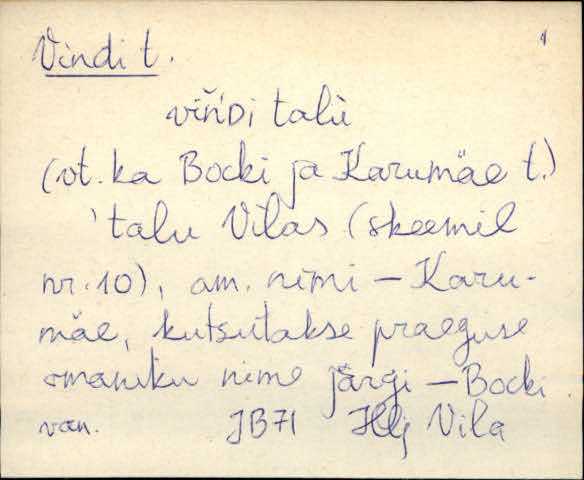 Vindi t.
viňɴ́ᴅi talù
(vt. ka Bocki ja Karumäe t.)
'talu Vilas (skeemil
nr. 10), am. nimi – Karu-
mäe, kutsutakse praeguse
omaniku nime järgi – Bocki
van. JB71 Hlj Vila